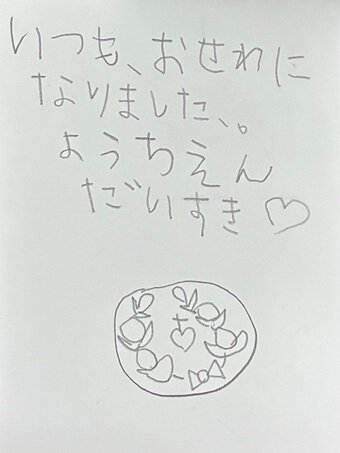 いつも、おせれに
なりました、。
ようちえん
だいすき♡